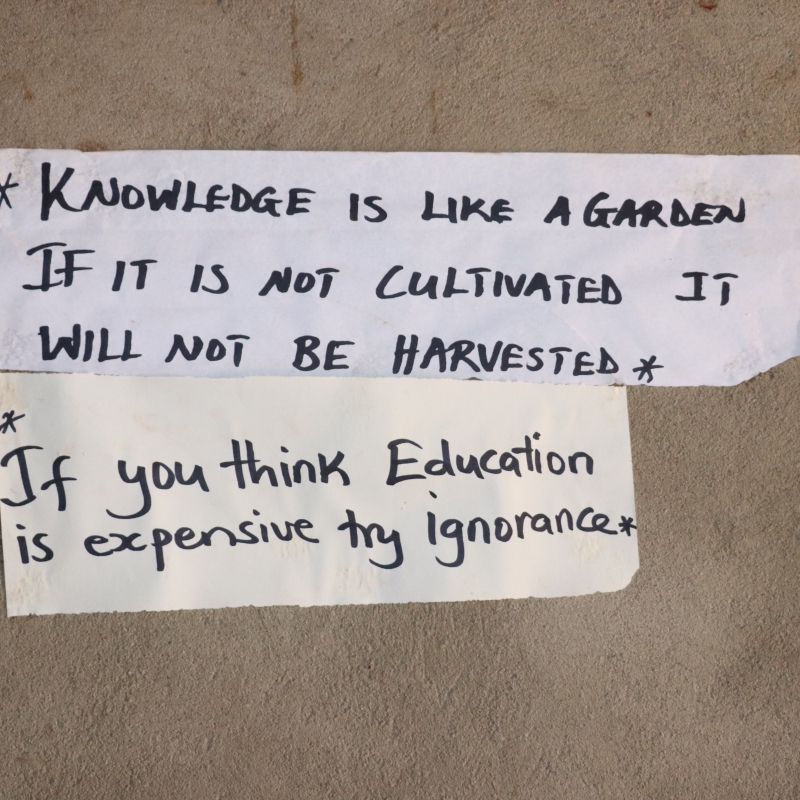 * KNOWLEDGE IS LIKE A GARDEN
IF IT IS NOT CULTIVATED IT
WILL NOT BE HARVESTED *
*
If you think Education
is expensive try ignorance*